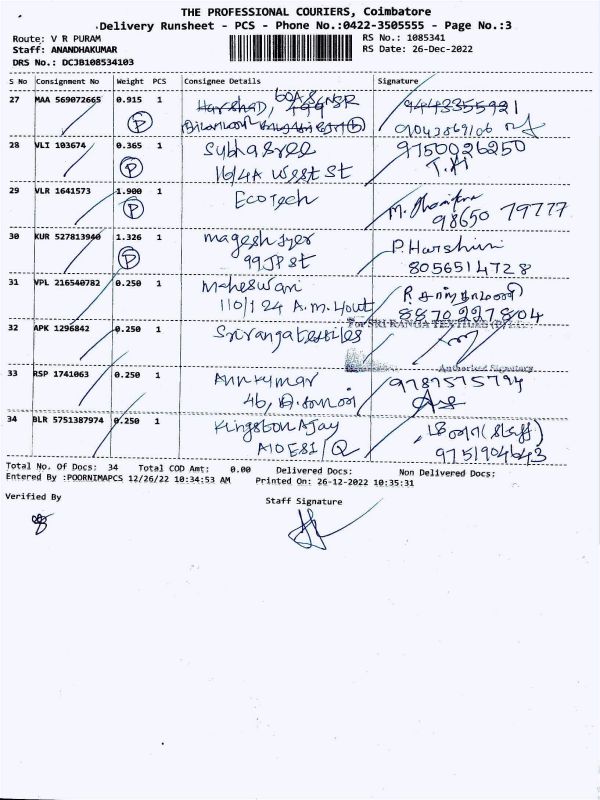 THE PROFESSIONAL COURIERS, Coimbatore
Delivery Runsheet - PCS - Phone No.:0422-3505555 - Page No.:3
Route: V R PURAM
RS No.: 1085341
Staff: ANANDHAKUMAR
RS Date: 26-Dec-2022
DRS No.: DCJB108534103
S No Consignment No Weight PCS Consignee Details Signature
27 MAA 569072665 0.915 1 Harshad, 9443355921
P 9042869106
28 VLI 103674 0.365 1 Subhasree 9750026250
P 16/4A West St T.M
29 VLR 1641573 1.900 1 Ecotech
P 98650 79777
30 KUR 527813940 1.326 1 Magesh Iyer P. Harshini
P 99 JP St 8056514728
31 VPL 216540782 0.250 1 Maheswari
110/1 24 A.M. Lout 8870227804
32 APK 1296842 0.250 1 Sriranga textiles For SRI RANGA TEXTILES
Authorised Signatory
33 RSP 1741063 0.250 1 Arunkumar 9787575794
46,
34 BLR 5751387974 0.250 1 Kingston Ajay
A10 E81/Q 9751904643
Total No. Of Docs: 34 Total COD Amt: 0.00 Delivered Docs: Non Delivered Docs:
Entered By :POORNIMAPCS 12/26/22 10:34:53 AM Printed On: 26-12-2022 10:35:31
Verified By
Staff Signature